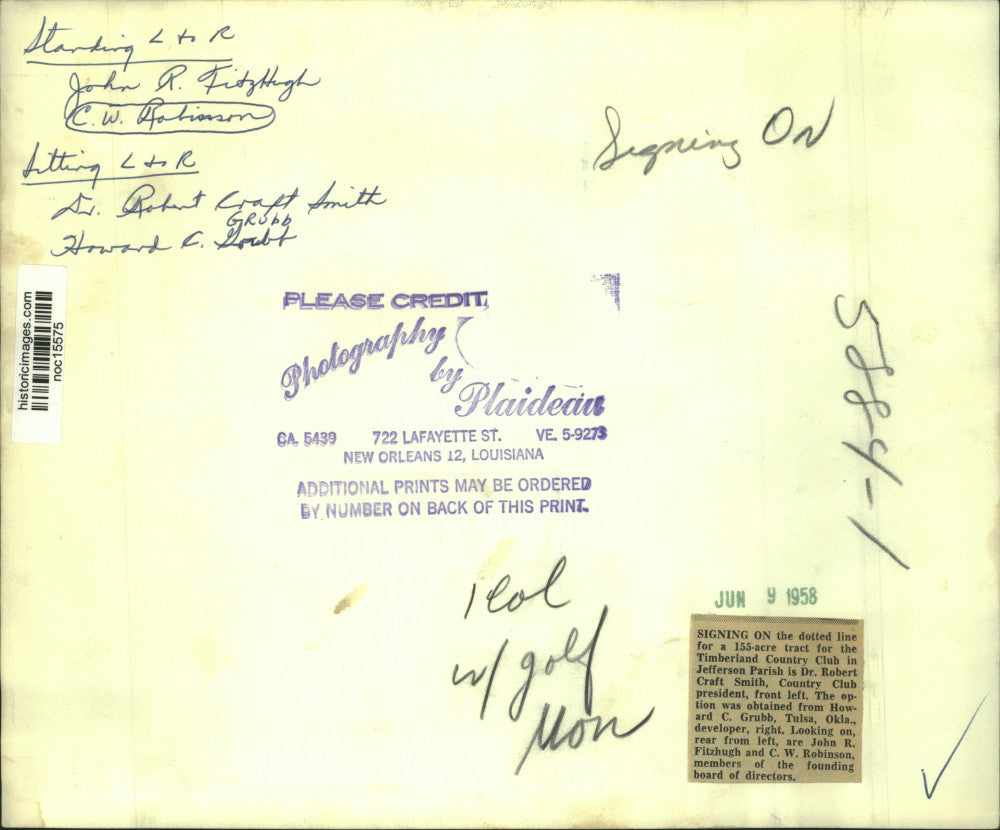 Standing L to R
John R. FitzHugh
C. W. Robinson
Sitting L to R
Dr. Robert Craft Smith
GRUbb
Howard C. Groubt
Signing ON
historicimages.com
noc15575
PLEASE CREDIT
Photography
by
Plaideau
CA. 5439 722 LAFAYETTE ST. VE. 5-9273
NEW ORLEANS 12, LOUISIANA
ADDITIONAL PRINTS MAY BE ORDERED
BY NUMBER ON BACK OF THIS PRINT.
5884-1
1 col
w/ golf
Mon
JUN 9 1958
SIGNING ON the dotted line
for a 155-acre tract for the
Timberland Country Club in
Jefferson Parish is Dr. Robert
Craft Smith, Country Club
president, front left. The op-
tion was obtained from How-
ard C. Grubb, Tulsa, Okla.,
developer, right. Looking on,
rear from left, are John R.
Fitzhugh and C. W. Robinson,
members of the founding
board of directors.